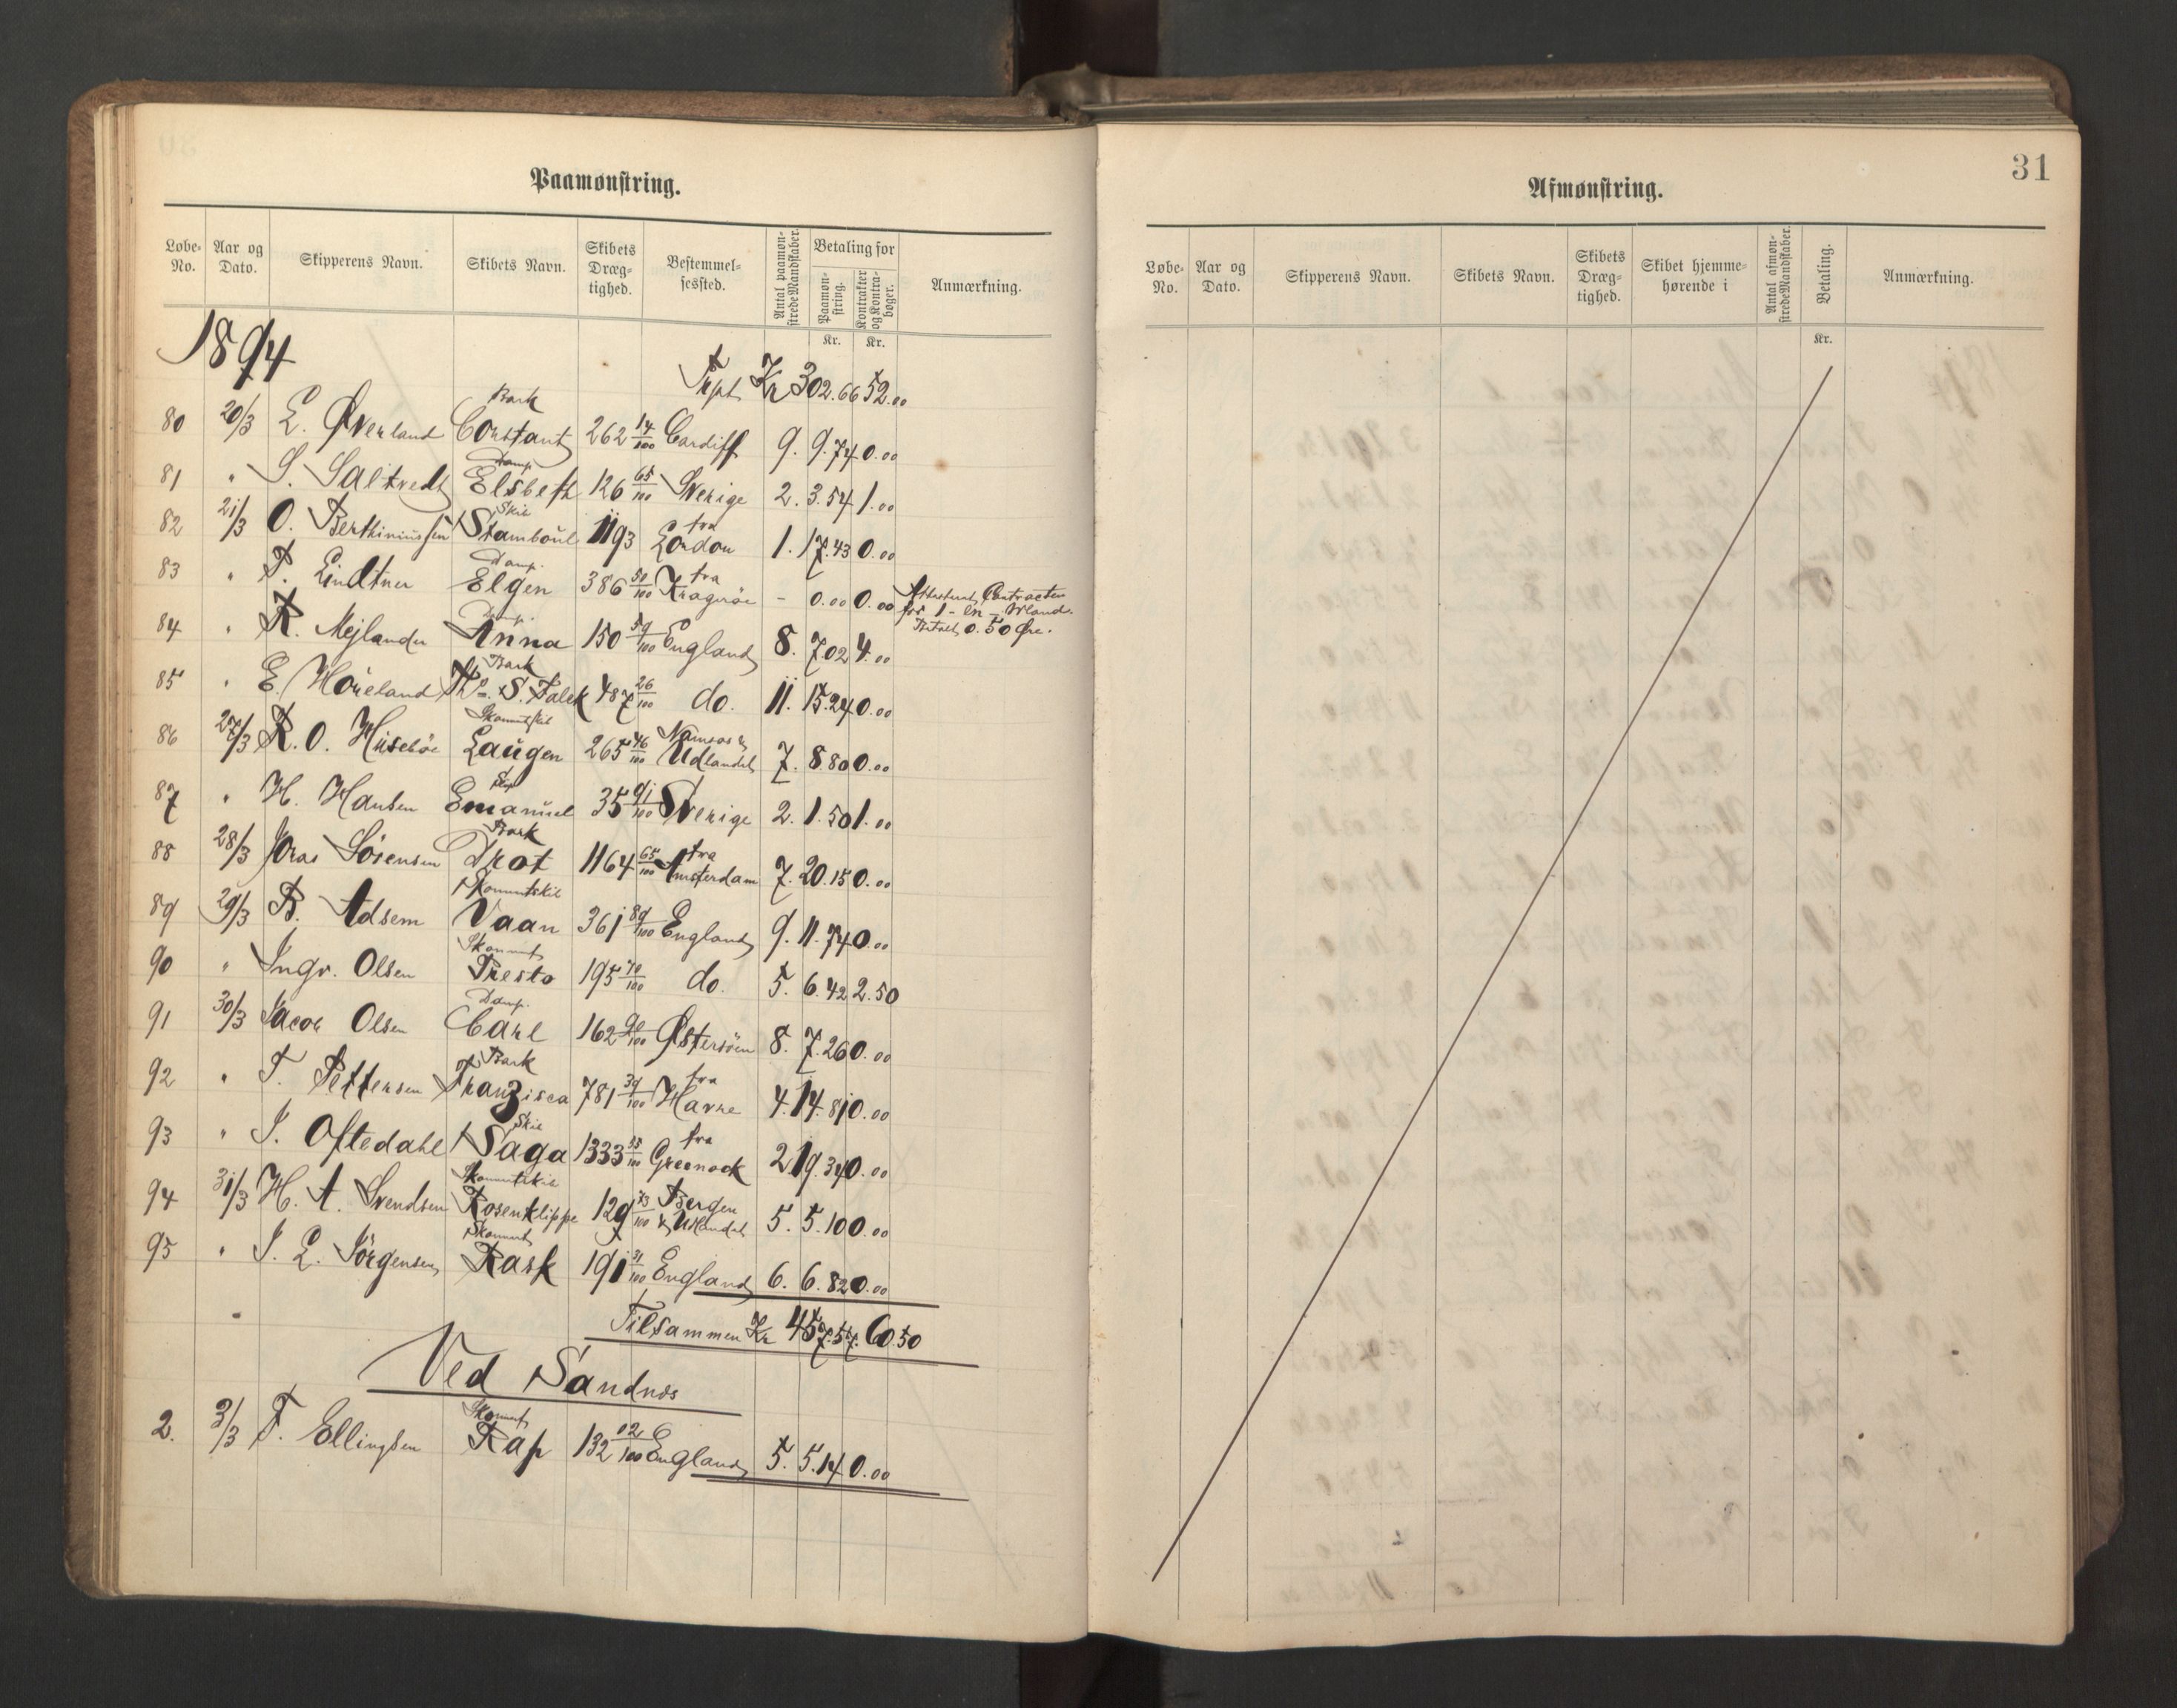 Paamønstring.
Løbe-No. Aar og Dato. Skipperens Navn. Skibets Navn. Skibets Dræg-tighed. Bestemmel-sessted. Antal paamøn-strede Mandskaber. Betaling for Paamøn-string. Kontrakter og Kontra-bøger. Anmærkning.
Kr. Kr.
1894
Trpt. Kr 302.66 52.00
80 20/3 L. Øverland Bark Constant 262 14/100 Cardiff 9. 9.74 0.00
81 " S. Saltvedt Damp. Elsbeth 126 65/100 Sverige 2. 3.54 1.00
82 21/3 O. Berthiniussen Skib Stamboul 1193 fra London 1. 17.43 0.00
83 " T. Lindtner Damp. Elgen 386 51/100 fra Kragerøe - 0.00 0.00 Attesteret Contracten for 1 - en - Mand. Betalt 0.50 Øre.
84 " K. Mejlander Damp. Anna 150 59/100 England 8. 7.02 4.00
85 " E. Høieland Bark Ths. S. Falck 487 26/100 do. 11. 15.24 0.00
86 27/3 K. O. Husebøe Skonnertskib Laugen 265 46/100 Namsos & Udlandet 7. 8.80 0.00
87 " H. Hansen Slup Emanuel 35 91/100 Sverige 2. 1.50 1.00
88 28/3 Jonas Sörensen Bark Drot 1164 65/100 fra Amsterdam 7. 20.15 0.00
89 29/3 B. Adsem Skonnertskib Vaan 361 89/100 England 9. 11.74 0.00
90 " Ingv. Olsen Skonnert Presto 195 70/100 do. 5. 6.42 2.50
91 30/3 Jacob Olsen Damp. Carl 162 90/100 Østersöen 8. 7.26 0.00
92 " T. Pettersen Bark Franzisca 781 39/100 fra Havre 4. 14.81 0.00
93 " J. Oftedahl Skib Saga 1333 35/100 fra Greenock 2. 19.34 0.00
94 31/3 H. A. Svendsen Skonnertskib Rosenklippe 129 73/100 Bergen & Udlandet 5. 5.10 0.00
95 " J. L. Jörgensen Skonnert Rask 191 31/100 England 6. 6.82 0.00
Tilsammen Kr 457.57. 60.50
Ved Sandnæs
2. 3/3 T. Ellingsen Skonnert Rap 132 02/100 England 5. 5.14 0.00
31
Afmønstring.
Løbe-No. Aar og Dato. Skipperens Navn. Skibets Navn. Skibets Dræg-tighed. Skibet hjemme-hørende i Antal afmøn-strede Mandskaber. Betaling. Anmærkning.
Kr.